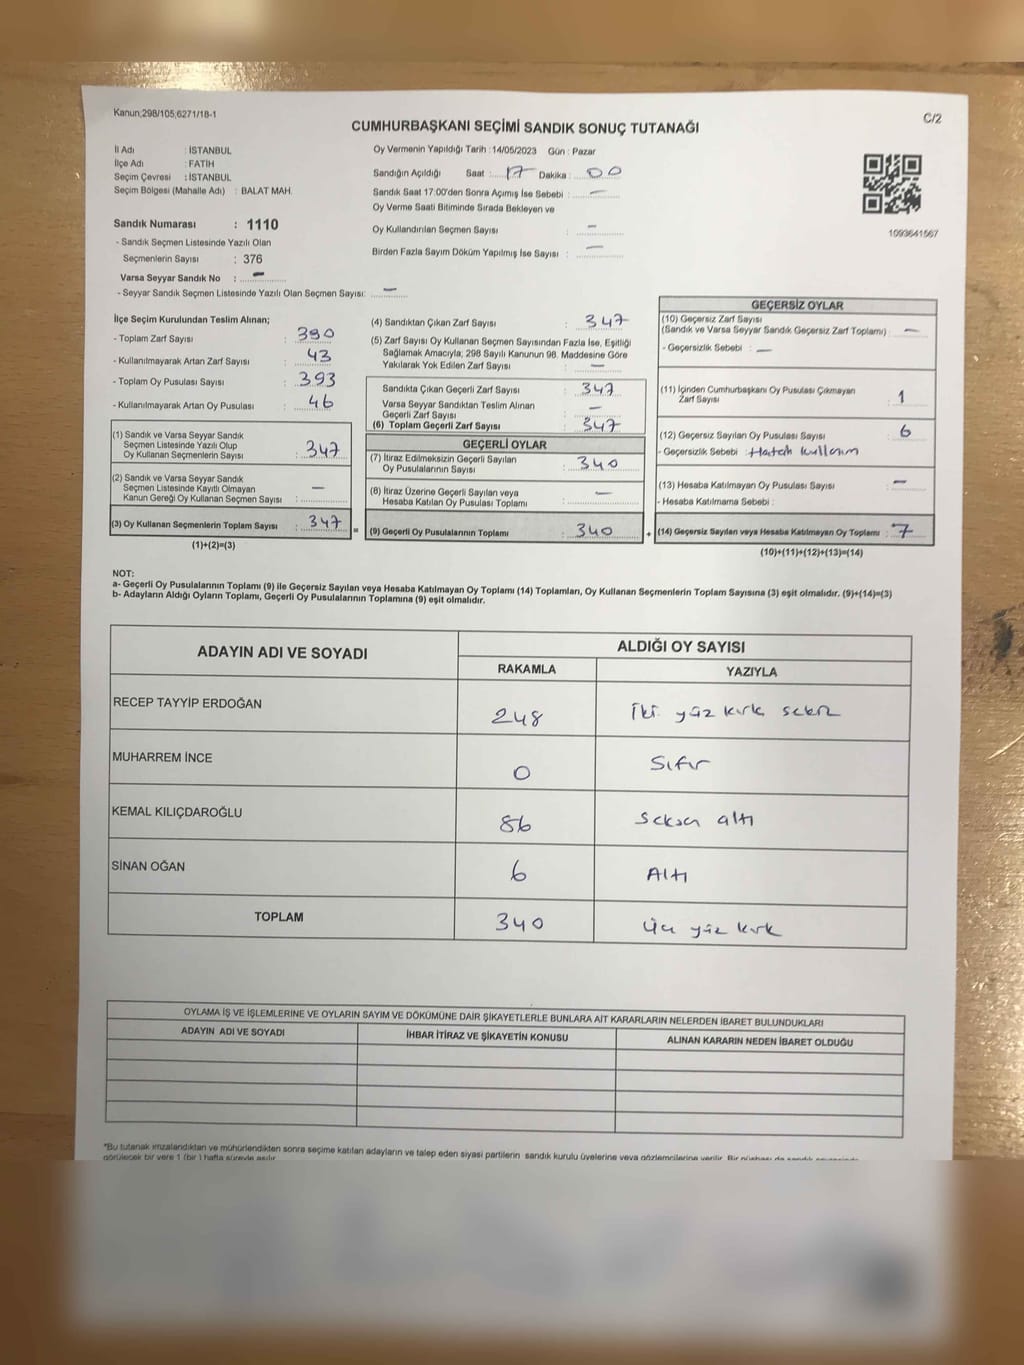 Kanun;298/105,6271/18-1
C/2
CUMHURBAŞKANI SEÇİMİ SANDIK SONUÇ TUTANAĞI
İl Adı : İSTANBUL
İlçe Adı : FATİH
Seçim Çevresi : İSTANBUL
Seçim Bölgesi (Mahalle Adı) : BALAT MAH.
Sandık Numarası : 1110
- Sandık Seçmen Listesinde Yazılı Olan
Seçmenlerin Sayısı : 376
Varsa Seyyar Sandık No : —
- Seyyar Sandık Seçmen Listesinde Yazılı Olan Seçmen Sayısı: —
Oy Vermenin Yapıldığı Tarih : 14/05/2023 Gün : Pazar
Sandığın Açıldığı Saat : 17 Dakika : 00
Sandık Saat 17:00'den Sonra Açımış İse Sebebi : —
Oy Verme Saati Bitiminde Sırada Bekleyen ve
Oy Kullandırılan Seçmen Sayısı : —
Birden Fazla Sayım Döküm Yapılmış İse Sayısı : —
1093641567
İlçe Seçim Kurulundan Teslim Alınan;
- Toplam Zarf Sayısı : 390
- Kullanılmayarak Artan Zarf Sayısı : 43
- Toplam Oy Pusulası Sayısı : 393
- Kullanılmayarak Artan Oy Pusulası : 46
(1) Sandık ve Varsa Seyyar Sandık
Seçmen Listesinde Yazılı Olup
Oy Kullanan Seçmenlerin Sayısı : 347
(2) Sandık ve Varsa Seyyar Sandık
Seçmen Listesinde Kayıtlı Olmayan
Kanun Gereği Oy Kullanan Seçmen Sayısı : —
(3) Oy Kullanan Seçmenlerin Toplam Sayısı : 347
(1)+(2)=(3)
(4) Sandıktan Çıkan Zarf Sayısı : 347
(5) Zarf Sayısı Oy Kullanan Seçmen Sayısından Fazla İse, Eşitliği
Sağlamak Amacıyla; 298 Sayılı Kanunun 98. Maddesine Göre
Yakılarak Yok Edilen Zarf Sayısı : —
Sandıkta Çıkan Geçerli Zarf Sayısı : 347
Varsa Seyyar Sandıktan Teslim Alınan
Geçerli Zarf Sayısı : —
(6) Toplam Geçerli Zarf Sayısı : 347
GEÇERLİ OYLAR
(7) İtiraz Edilmeksizin Geçerli Sayılan
Oy Pusulalarının Sayısı : 340
(8) İtiraz Üzerine Geçerli Sayılan veya
Hesaba Katılan Oy Pusulası Toplamı : —
= (9) Geçerli Oy Pusulalarının Toplamı : 340
GEÇERSİZ OYLAR
(10) Geçersiz Zarf Sayısı
(Sandık ve Varsa Seyyar Sandık Geçersiz Zarf Toplamı) : —
- Geçersizlik Sebebi : —
(11) İçinden Cumhurbaşkanı Oy Pusulası Çıkmayan
Zarf Sayısı : 1
(12) Geçersiz Sayılan Oy Pusulası Sayısı : 6
- Geçersizlik Sebebi : Hatalı kullanım
(13) Hesaba Katılmayan Oy Pusulası Sayısı : —
- Hesaba Katılmama Sebebi :
+ (14) Geçersiz Sayılan veya Hesaba Katılmayan Oy Toplamı : 7
(10)+(11)+(12)+(13)=(14)
NOT:
a- Geçerli Oy Pusulalarının Toplamı (9) ile Geçersiz Sayılan veya Hesaba Katılmayan Oy Toplamı (14) Toplamları, Oy Kullanan Seçmenlerin Toplam Sayısına (3) eşit olmalıdır. (9)+(14)=(3)
b- Adayların Aldığı Oyların Toplamı, Geçerli Oy Pusulalarının Toplamına (9) eşit olmalıdır.
ADAYIN ADI VE SOYADI ALDIĞI OY SAYISI
RAKAMLA YAZIYLA
RECEP TAYYİP ERDOĞAN 248 İki yüz kırk sekiz
MUHARREM İNCE 0 Sıfır
KEMAL KILIÇDAROĞLU 86 Seksen altı
SİNAN OĞAN 6 Altı
TOPLAM 340 Üç yüz kırk
OYLAMA İŞ VE İŞLEMLERİNE VE OYLARIN SAYIM VE DÖKÜMÜNE DAİR ŞİKAYETLERLE BUNLARA AİT KARARLARIN NELERDEN İBARET BULUNDUKLARI
ADAYIN ADI VE SOYADI İHBAR İTİRAZ VE ŞİKAYETİN KONUSU ALINAN KARARIN NEDEN İBARET OLDUĞU
*Bu tutanak imzalandıktan ve mühürlendikten sonra seçime katılan adayların ve talep eden siyasi partilerin sandık kurulu üyelerine veya gözlemcilerine verilir. Bir nüshası da sandık
görülecek bir yere 1 (bir ) hafta süreyle asılır.